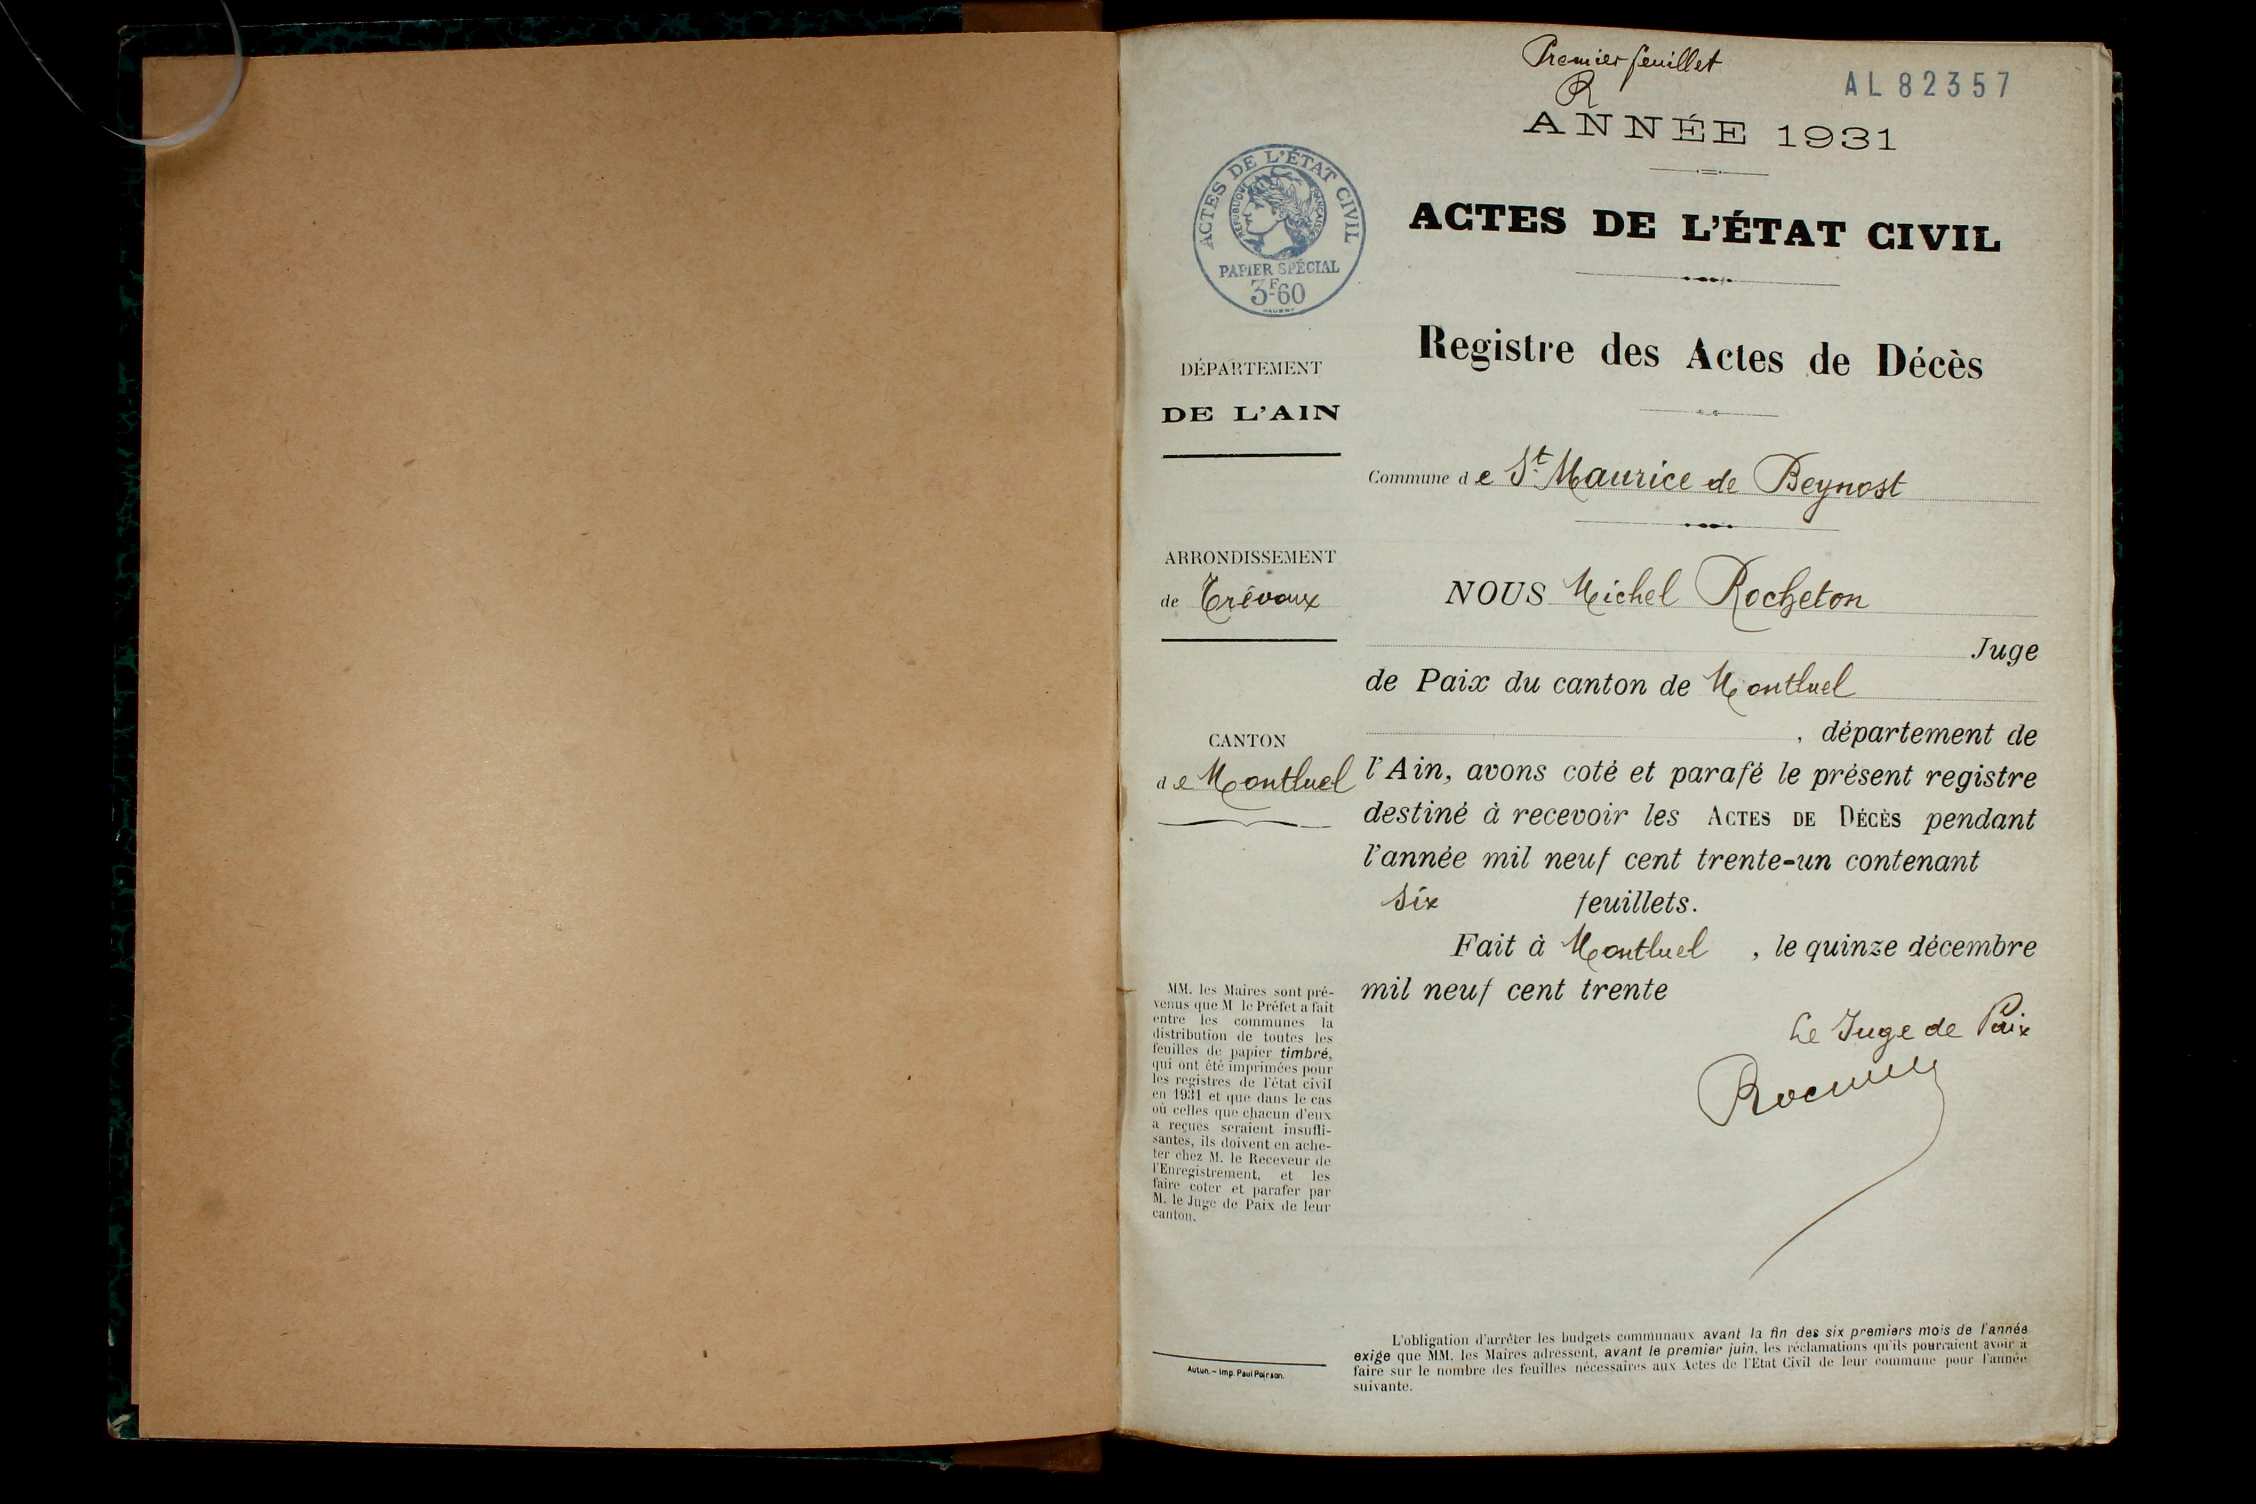 Premier feuillet
R
AL 82357
ANNÉE 1931
ACTES DE L'ÉTAT CIVIL
RÉPUBLIQUE FRANÇAISE
PAPIER SPÉCIAL
3F60
ACTES DE L'ÉTAT CIVIL
Registre des Actes de Décès
DÉPARTEMENT
DE L'AIN
Commune de St Maurice de Beynost
ARRONDISSEMENT
de Trévoux
NOUS Michel Rocheton
Juge
de Paix du canton de Montluel
, département de
CANTON
de Montluel
l'Ain, avons coté et parafé le présent registre
destiné à recevoir les ACTES DE DÉCÈS pendant
l'année mil neuf cent trente-un contenant
six feuillets.
Fait à Montluel, le quinze décembre
mil neuf cent trente
Le Juge de Paix
MM. les Maires sont pré-
venus que M le Préfet a fait
entre les communes la
distribution de toutes les
feuilles de papier timbré,
qui ont été imprimées pour
les registres de l'état civil
en 1931 et que dans le cas
où celles que chacun d'eux
a reçues seraient insuffi-
santes, ils doivent en ache-
ter chez M. le Receveur de
l'Enregistrement, et les
faire coter et parafer par
M. le Juge de Paix de leur
canton.
Autun. – Imp. Paul Poirson.
L'obligation d'arrêter les budgets communaux avant la fin des six premiers mois de l'année
exige que MM. les Maires adressent, avant le premier juin, les réclamations qu'ils pourraient avoir à
faire sur le nombre des feuilles nécessaires aux Actes de l'Etat Civil de leur commune pour l'année
suivante.